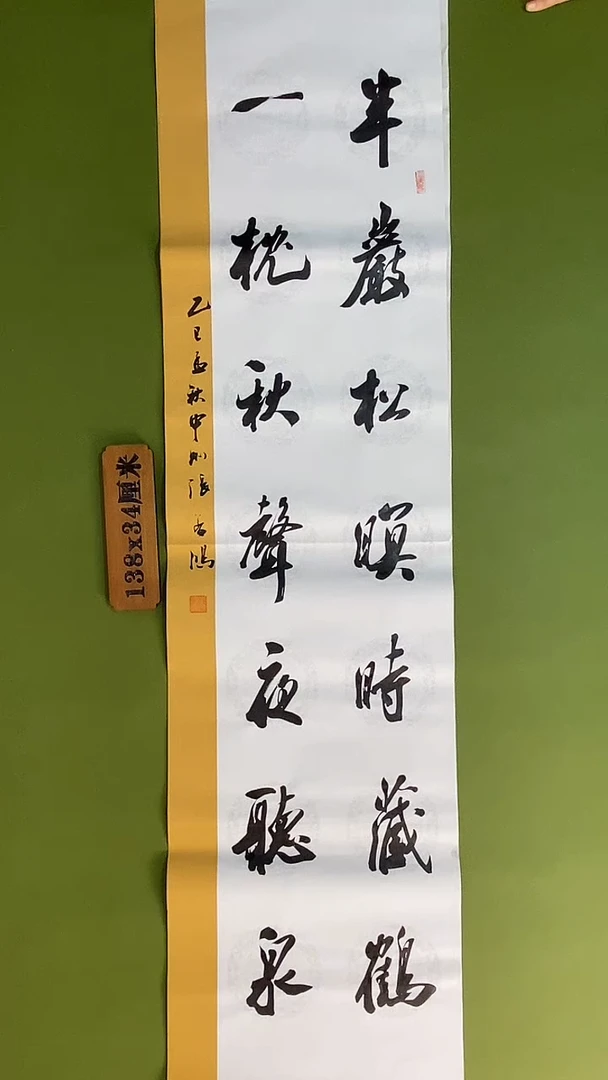 半巖松暝時藏鶴
一枕秋聲夜聽泉
乙巳孟秋中州張名鴻
138x34厘米